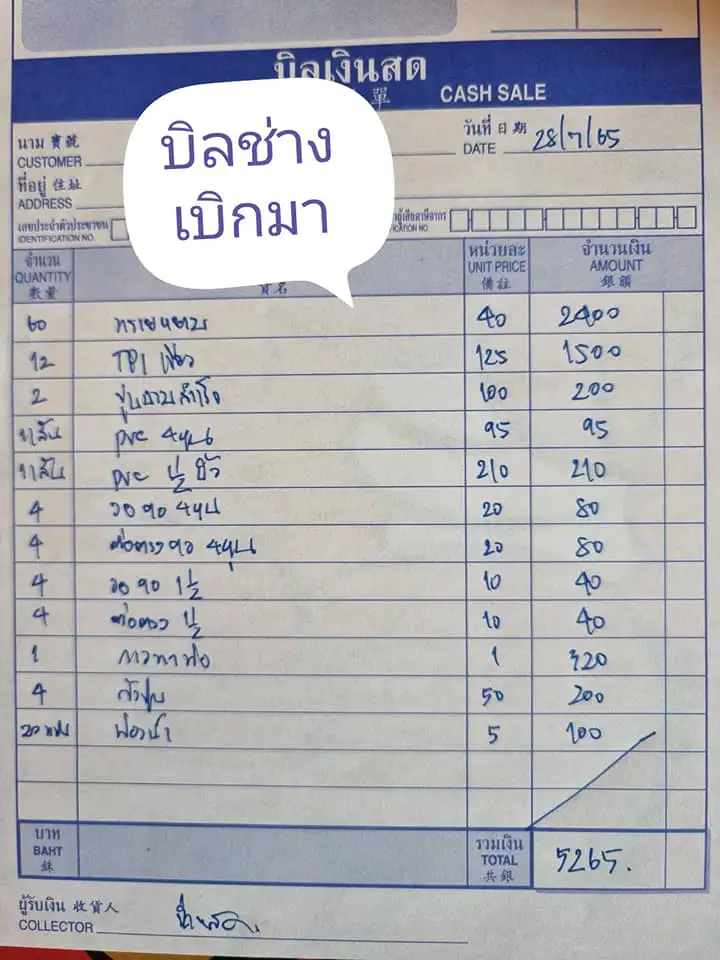 บิลเงินสด
單
CASH SALE
บิลช่าง
เบิกมา
นาม 寶號
CUSTOMER
วันที่ 日期
DATE 28/7/65
ที่อยู่ 住址
ADDRESS
เลขประจำตัวประชาชน
IDENTIFICATION NO.
ผู้เสียภาษีอากร
จำนวน หน่วยละ จำนวนเงิน
QUANTITY UNIT PRICE AMOUNT
數量 貨名 備註 銀額
60 ทรายหยาบ 40 2400
12 TPI เขียว 125 1500
2 100 200
1 เส้น pvc 4หุน 95 95
1 เส้น pvc 1½ นิ้ว 210 210
4 งอ 90 4หุน 20 80
4 ต่อตรง 4หุน 20 80
4 งอ 90 1½ 10 40
4 ต่อตรง 1½ 10 40
1 กาวทาท่อ 1 320
4 50 200
20 5 100
บาท รวมเงิน
BAHT TOTAL 5265.
銖 共銀
ผู้รับเงิน 收貨人
COLLECTOR